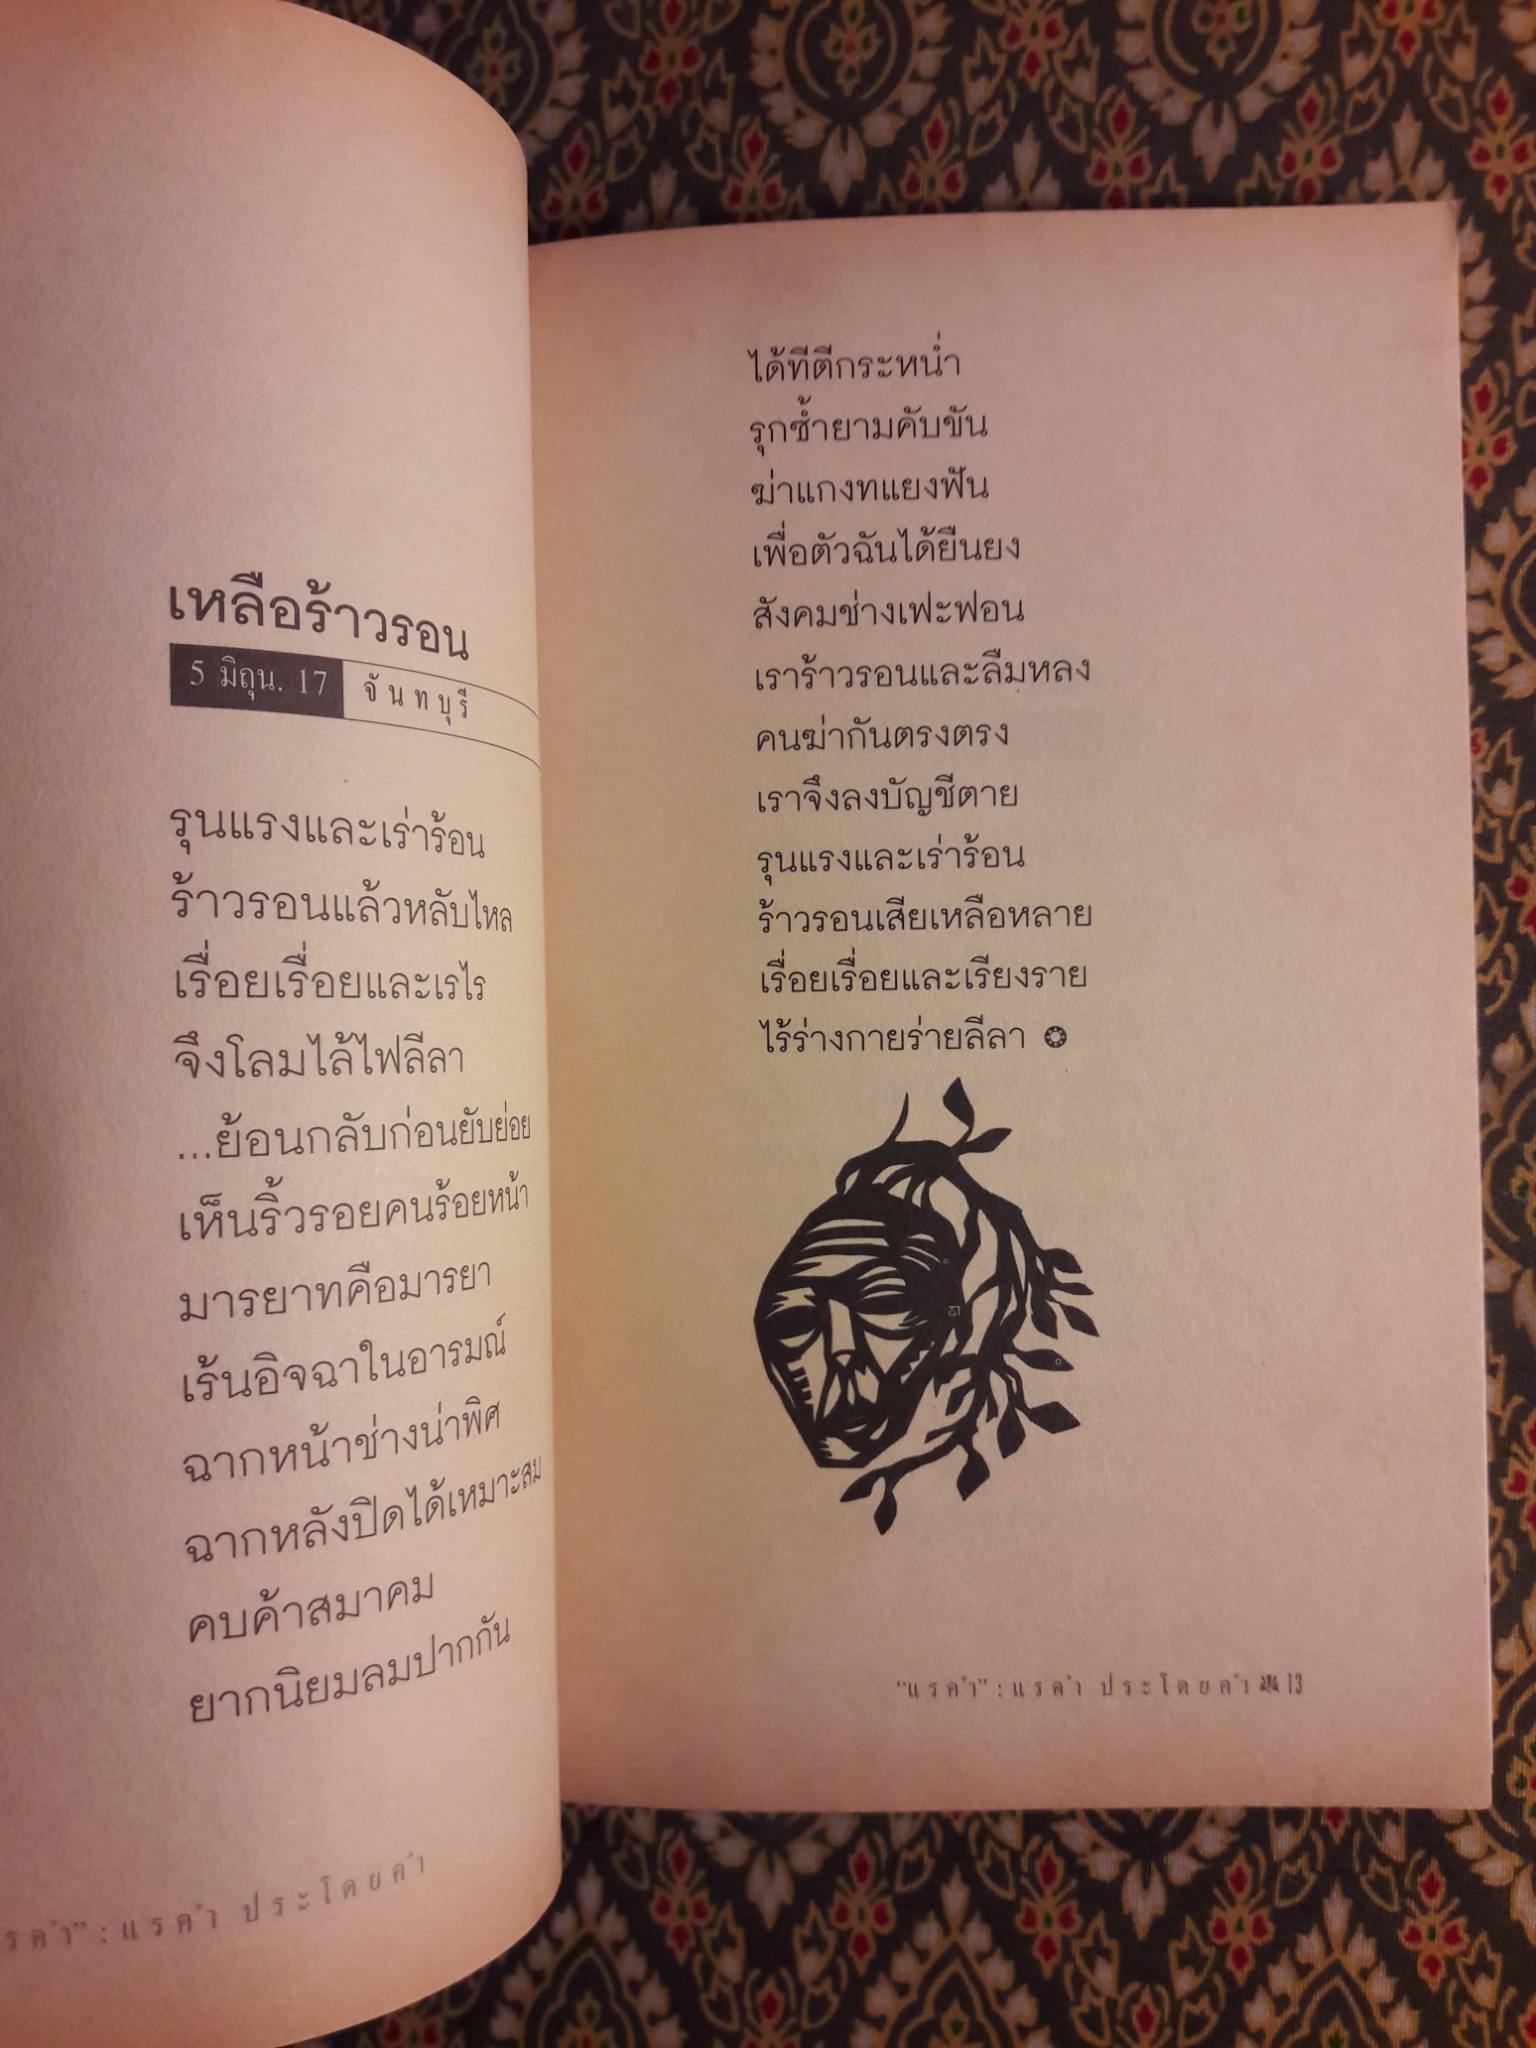 เหลือร้าวรอน
5 มิถุน. 17 จันทบุรี
รุนแรงและเร่าร้อน
ร้าวรอนแล้วหลับไหล
เรื่อยเรื่อยและเรไร
จึงโลมไล้ไฟลีลา
...ย้อนกลับก่อนยับย่อย
เห็นริ้วรอยคนร้อยหน้า
มารยาทคือมารยา
เร้นอิจฉาในอารมณ์
ฉากหน้าช่างน่าพิศ
ฉากหลังปิดได้เหมาะสม
คบค้าสมาคม
ยากนิยมลมปากกัน
รคำ” : แรคำ ประโดยคำ
ได้ทีตีกระหน่ำ
รุกซ้ำยามคับขัน
ฆ่าแกงทแยงฟัน
เพื่อตัวฉันได้ยืนยง
สังคมช่างเฟะฟอน
เราร้าวรอนและลืมหลง
คนฆ่ากันตรงตรง
เราจึงลงบัญชีตาย
รุนแรงและเร่าร้อน
ร้าวรอนเสียเหลือหลาย
เรื่อยเรื่อยและเรียงราย
ไร้ร่างกายร่ายลีลา
“แรคำ” : แรคำ ประโดยคำ 13